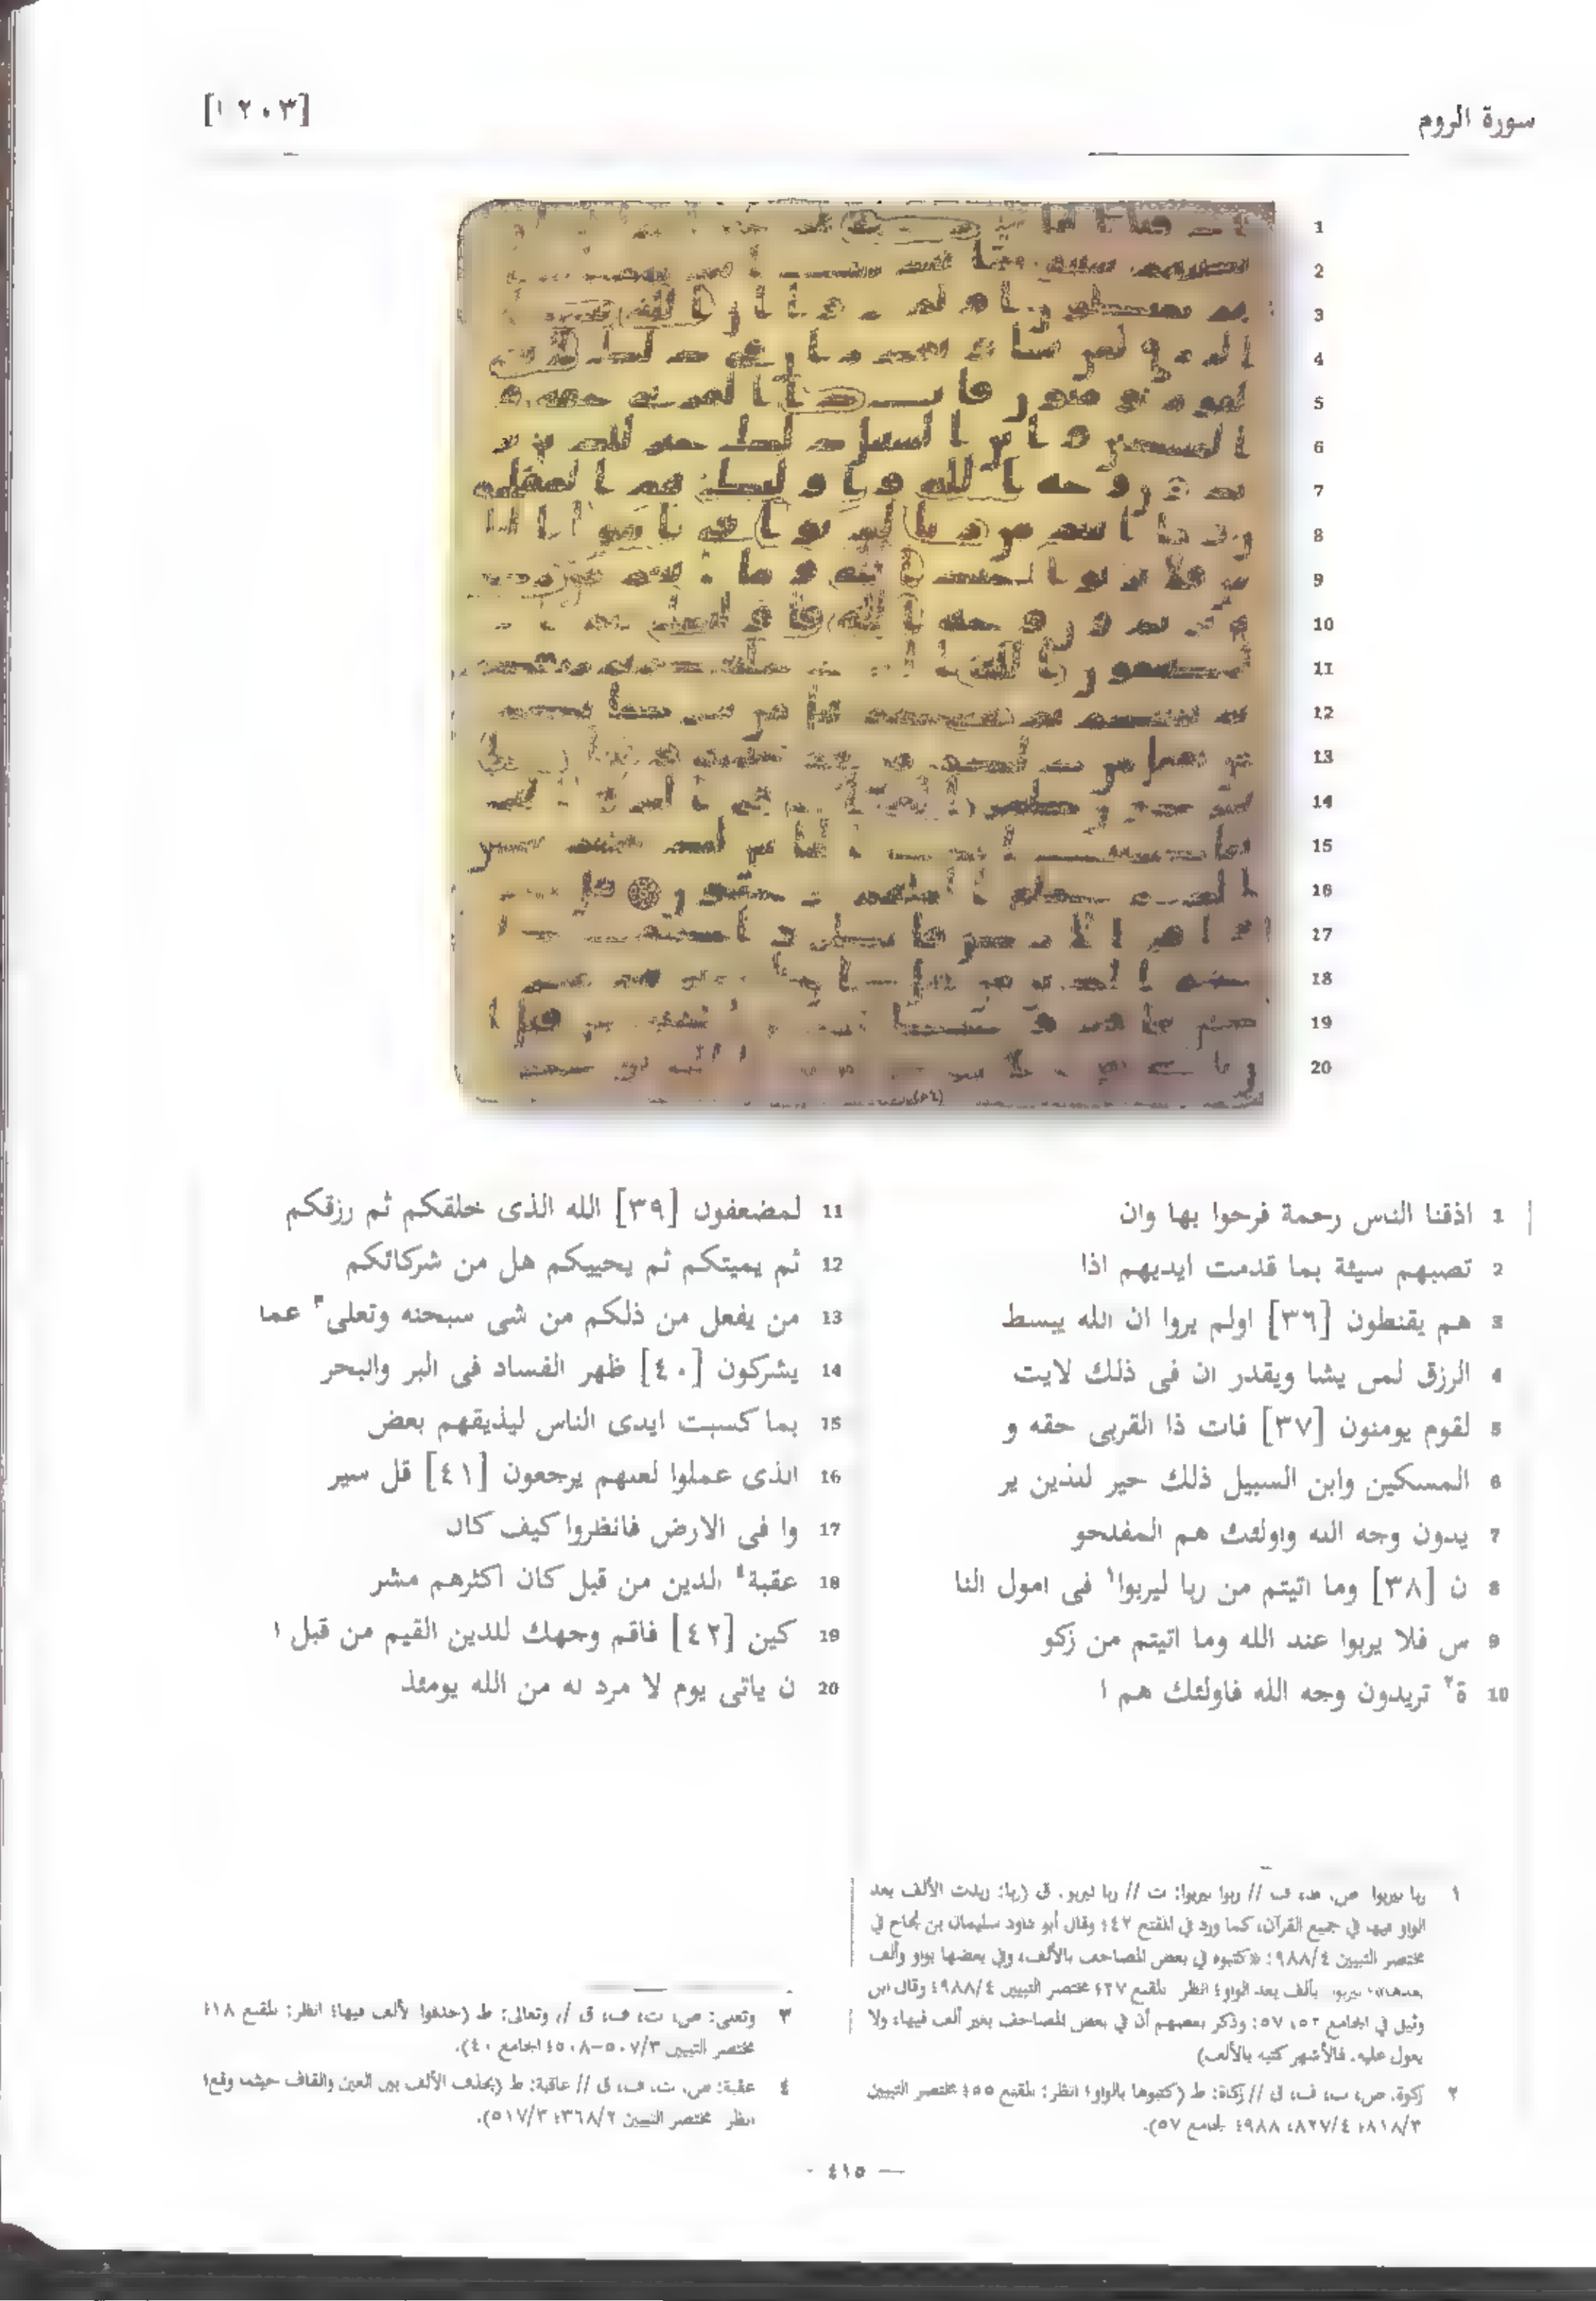 سورة الروم
[٢٠٣ ١]
1 اذقنا الناس رحمة فرحوا بها وان
2 تصبهم سيئة بما قدمت ايديهم اذا
3 هم يقنطون [٣٦] اولم يروا ان الله يبسط
4 الرزق لمن يشا ويقدر ان فى ذلك لايت
5 لقوم يومنون [٣٧] فات ذا القربى حقه و
6 المسكين وابن السبيل ذلك خير للذين ير
7 يدون وجه الله واولئك هم المفلحو
8 ن [٣٨] وما اتيتم من ربا ليربوا١ فى امول النا
9 س فلا يربوا عند الله وما اتيتم من زكو
10 ة٢ تريدون وجه الله فاولئك هم ا
11 لمضعفون [٣٩] الله الذى خلقكم ثم رزقكم
12 ثم يميتكم ثم يحييكم هل من شركائكم
13 من يفعل من ذلكم من شى سبحنه وتعلى٣ عما
14 يشركون [٤٠] ظهر الفساد فى البر والبحر
15 بما كسبت ايدى الناس ليذيقهم بعض
16 الذى عملوا لعلهم يرجعون [٤١] قل سير
17 وا فى الارض فانظروا كيف كان
18 عقبة٤ الذين من قبل كان اكثرهم مشر
19 كين [٤٢] فاقم وجهك للدين القيم من قبل ا
20 ن ياتى يوم لا مرد له من الله يومئذ
١ ربا ليربوا: ص، ف // ربوا ليربوا: ت // ربا ليربو: ق (ربا: زيدت الألف بعد
الواو فيها في جميع القرآن، كما ورد في المقنع ٤٢؛ وقال أبو داود سليمان بن نجاح في
مختصر التبيين ٩٨٨/٤: «كتبوه في بعض المصاحف بالألف، وفي بعضها بواو وألف
بعدها»؛ ليربوا: بألف بعد الواو؛ انظر: المقنع ٢٧؛ مختصر التبيين ٩٨٨/٤؛ وقال ابن
وثيق في الجامع ٥٢، ٥٧: وذكر بعضهم أن في بعض المصاحف بغير ألف فيها، ولا
يعول عليه، فالأشهر كتبه بالألف)
٢ زكوة: ص، ت، ف، ق // زكاة: ط (كتبوها بالواو؛ انظر: المقنع ٥٥؛ مختصر التبيين
٨١٨/٣؛ ٨٢٧/٤، ٩٨٨؛ الجامع ٥٧).
٣ وتعلى: ص، ت، ف، ق // وتعالى: ط (حذفوا الألف فيها؛ انظر: المقنع ١٨؛
مختصر التبيين ٥٠٧/٣-٥٠٨؛ الجامع ٤٠).
٤ عقبة: ص، ت، ف، ق // عاقبة: ط (بحذف الألف بين العين والقاف حيثما وقع؛
انظر: مختصر التبيين ٣٦٨/٢؛ ٥١٧/٣).
— ٤١٥ —